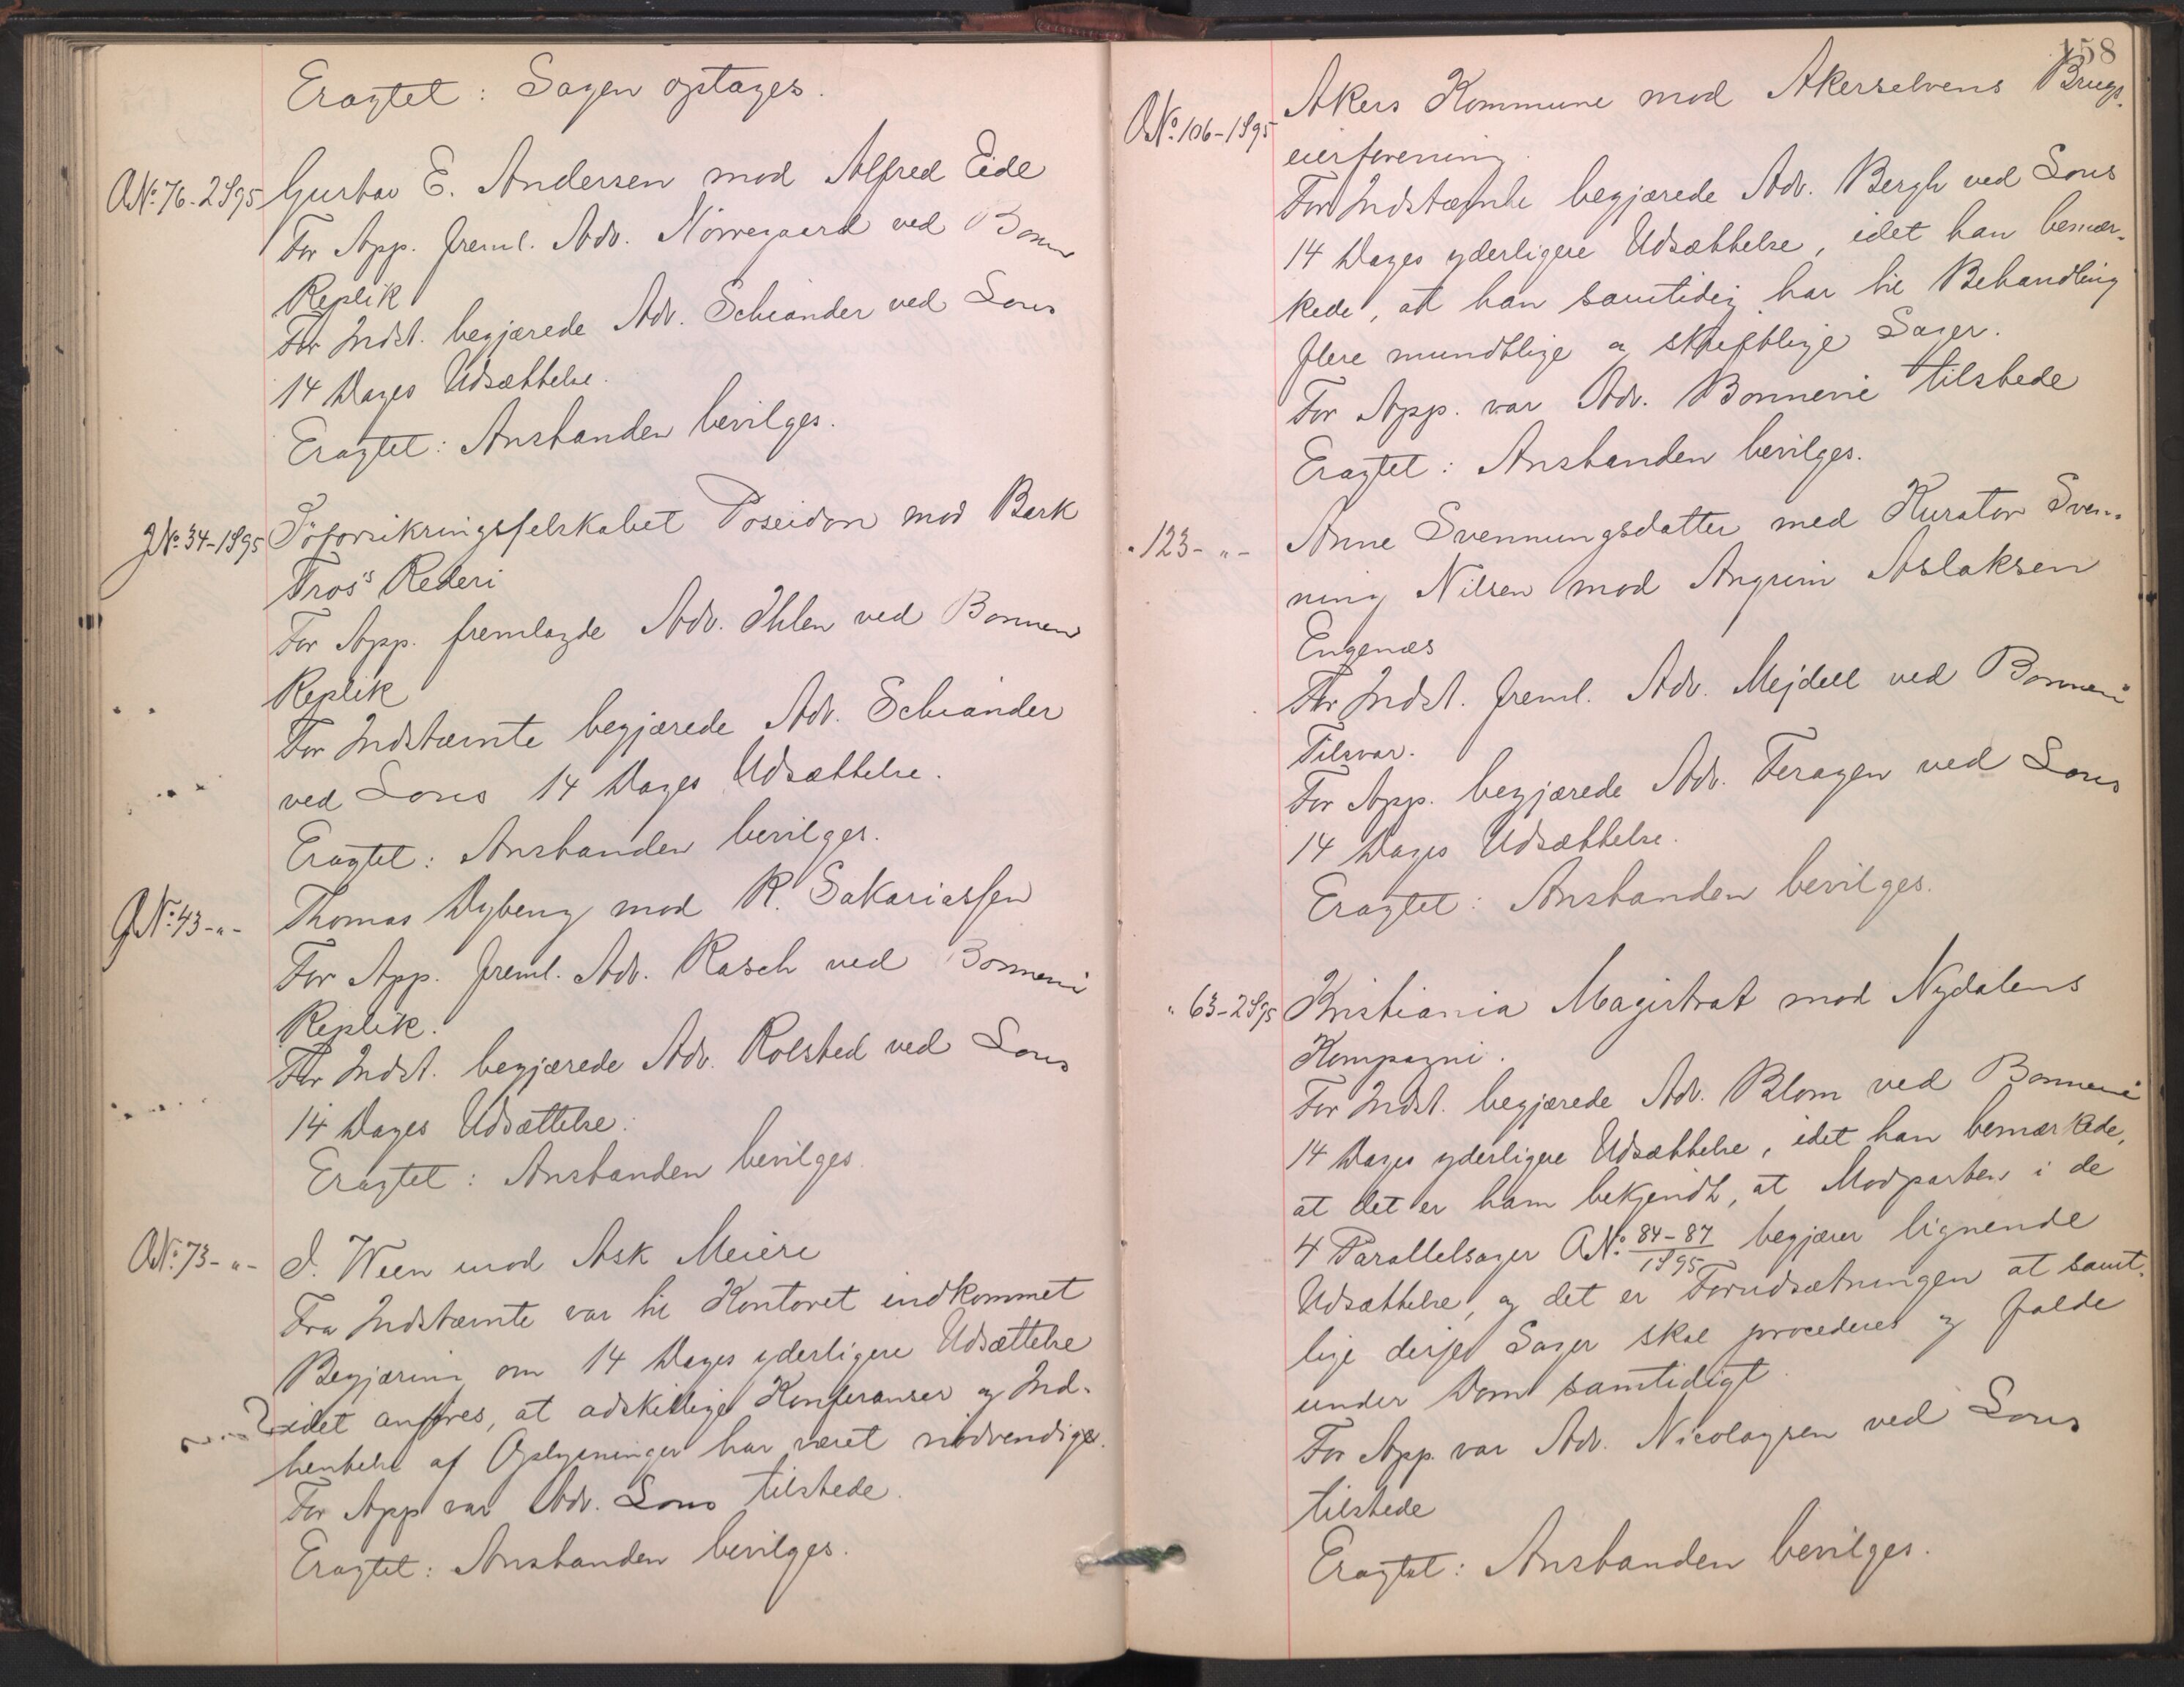 Eragtet: Sagen optages.
ANo. 76-2895 Gustav E. Andersen mod Alfred Eide
For App. freml. Adv. Nørregaard ved Bonnevi
Replik
For Indst. begjærede Adv. Schiander ved Lous
14 Dages Udsættelse.
Eragtet: Anstanden bevilges.
GNo. 34-1895 Søforsikringsselskabet Poseidon mod Bark
Fros's Rederi
For App. fremlagde Adv. Ihlen ved Bonnevi
Replik
For Indstævnte begjærede Adv. Schiander
ved Lous 14 Dages Udsættelse.
Eragtet: Anstanden bevilges.
GNo. 43-"- Thomas Dyberg mod R. Sakariassen
For App. freml. Adv. Rasch ved Bonnevi
Replik.
For Indst. begjærede Adv. Rolsted ved Lous
14 Dages Udsættelse.
Eragtet: Anstanden bevilges.
ANo. 73-"- I. Ween mod Ask Meieri
Fra Indstævnte var til Kontoret indkommet
Begjæring om 14 Dages yderligere Udsættelse
idet anføres, at adskillige Konferanser og Ind-
hentelse af Oplysninger har været nødvendige.
For App var Adv. Lous tilstede.
Eragtet: Anstanden bevilges.
158
ANo. 106-1895 Akers Kommune mod Akerselvens Brugs-
eierforening.
For Indstævnte begjærede Adv. Bergh ved Lous
14 Dages yderligere Udsættelse, idet han bemær-
kede, at han samtidig har til Behandling
flere mundtlige og skriftlige Sager.
For App. var Adv. Bonnevie tilstede
Eragtet: Anstanden bevilges.
" 123-"- Anne Svennungsdatter med Kurator Sven-
ning Nilsen mod Angrim Aslaksen
Engenæs
For Indst. freml. Adv. Mejdell ved Bonnevi
Tilsvar.
For App. begjærede Adv. Feragen ved Lous
14 Dages Udsættelse.
Eragtet: Anstanden bevilges.
" 63-2895 Kristiania Magistrat mod Nydalens
Kompagni.
For Indst. begjærede Adv. Blom ved Bonnevie
14 Dages yderligere Udsættelse, idet han bemærkede,
at det er ham bekjendt, at Modparten i de
4 Parallelsager ANo. 84-87/1895 begjærer lignende
Udsættelse, og det er Forudsætningen at samt-
lige disse Sager skal procederes og falde
under Dom samtidigt.
For App. var Adv. Nicolaysen ved Lous
tilstede
Eragtet: Anstanden bevilges.